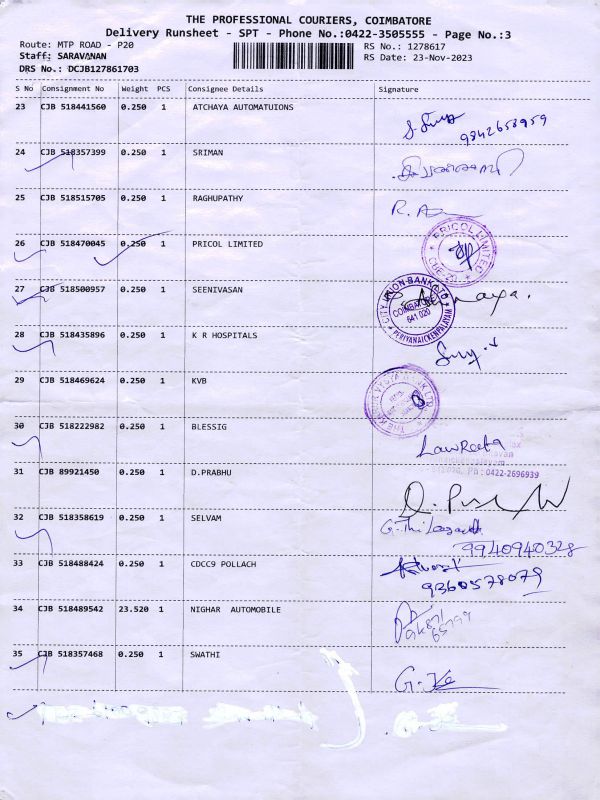 THE PROFESSIONAL COURIERS, COIMBATORE
Delivery Runsheet - SPT - Phone No.:0422-3505555 - Page No.:3
Route: MTP ROAD - P20 RS No.: 1278617
Staff: SARAVANAN RS Date: 23-Nov-2023
DRS No.: DCJB127861703
S No Consignment No Weight PCS Consignee Details Signature
23 CJB 518441560 0.250 1 ATCHAYA AUTOMATUIONS
9842658959
24 CJB 518357399 0.250 1 SRIMAN
25 CJB 518515705 0.250 1 RAGHUPATHY
26 CJB 518470045 0.250 1 PRICOL LIMITED
PRICOL LIMITED
27 CJB 518500957 0.250 1 SEENIVASAN
CITY UNION BANK LTD
COIMBATORE
641 020
PERIYANAICKENPALAYAM
28 CJB 518435896 0.250 1 K R HOSPITALS
29 CJB 518469624 0.250 1 KVB
30 CJB 518222982 0.250 1 BLESSIG
Ph : 0422-2696939
31 CJB 89921450 0.250 1 D.PRABHU
32 CJB 518358619 0.250 1 SELVAM
9940940328
33 CJB 518488424 0.250 1 CDCC9 POLLACH
9360578079
34 CJB 518489542 23.520 1 NIGHAR AUTOMOBILE
35 CJB 518357468 0.250 1 SWATHI